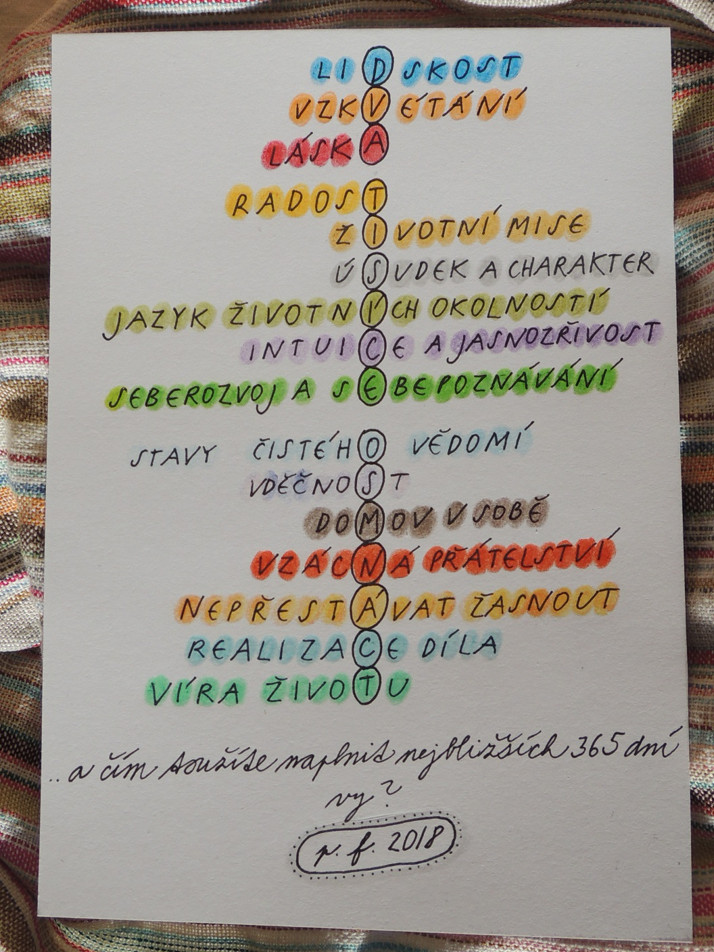 LIDSKOST
VZKVÉTÁNÍ
LÁSKA
RADOST
ŽIVOTNÍ MISE
ÚSUDEK A CHARAKTER
JAZYK ŽIVOTNÍCH OKOLNOSTÍ
INTUICE A JASNOZŘIVOST
SEBEROZVOJ A SEBEPOZNÁVÁNÍ
STAVY ČISTÉHO VĚDOMÍ
VDĚČNOST
DOMOV V SOBĚ
VZÁCNÁ PŘÁTELSTVÍ
NEPŘESTÁVAT ŽASNOUT
REALIZACE DÍLA
VÍRA ŽIVOTU
..a čím toužíte naplnit nejbližších 365 dní
vy?
p. f. 2018